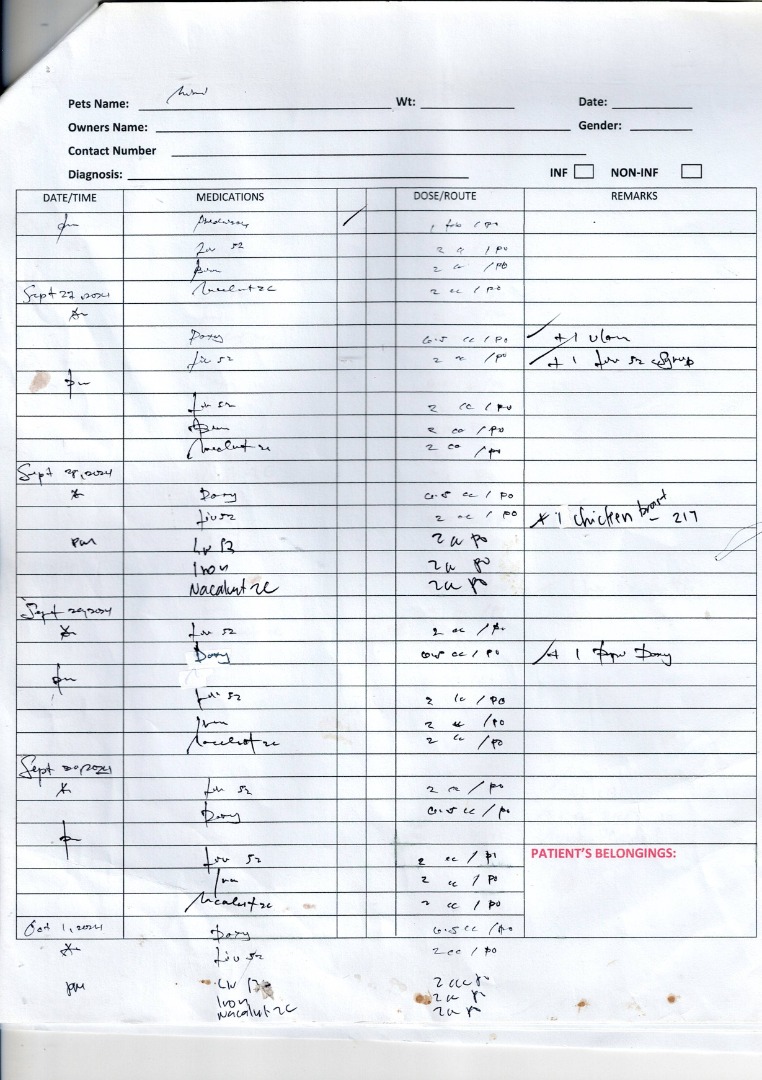 Pets Name: Wt: Date:
Owners Name: Gender:
Contact Number
Diagnosis: INF NON-INF
DATE/TIME MEDICATIONS DOSE/ROUTE REMARKS
pm 1 tab / po
Liv 52 2 cc / po
2 cc / po
Sept 27, 2024 Nacalvit 2c 2 cc / po
Doxy 0.5 cc / po + 1
Liv 52 2 cc / po + 1 Liv 52 syrup
pm
Liv 52 2 cc / po
2 cc / po
Nacalvit 2c 2 cc / po
Sept 28, 2024
Doxy 0.5 cc / po
Liv 52 2 cc / po 1 chicken breast - 217
pm 2cc po
Iron 2cc po
Nacalvit 2C 2cc po
Sept 29, 2024
Liv 52 2 cc / po
Doxy 0.5 cc / po + 1 Doxy
pm
Liv 52 2 cc / po
Iron 2 cc / po
Nacalvit 2c 2 cc / po
Sept 30, 2024
Liv 52 2 cc / po
Doxy 0.5 cc / po
pm
Liv 52 2 cc / po PATIENT'S BELONGINGS:
Iron 2 cc / po
Nacalvit 2c 2 cc / po
Oct 1, 2024 Doxy 0.5 cc / po
Liv 52 2 cc / po
pm 2cc po
Iron 2cc po
Nacalvit 2C 2cc po